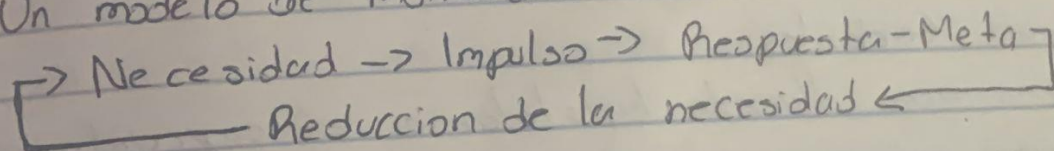 Un modelo de
→ Necesidad → Impulso → Respuesta - Meta
Reduccion de la necesidad ←